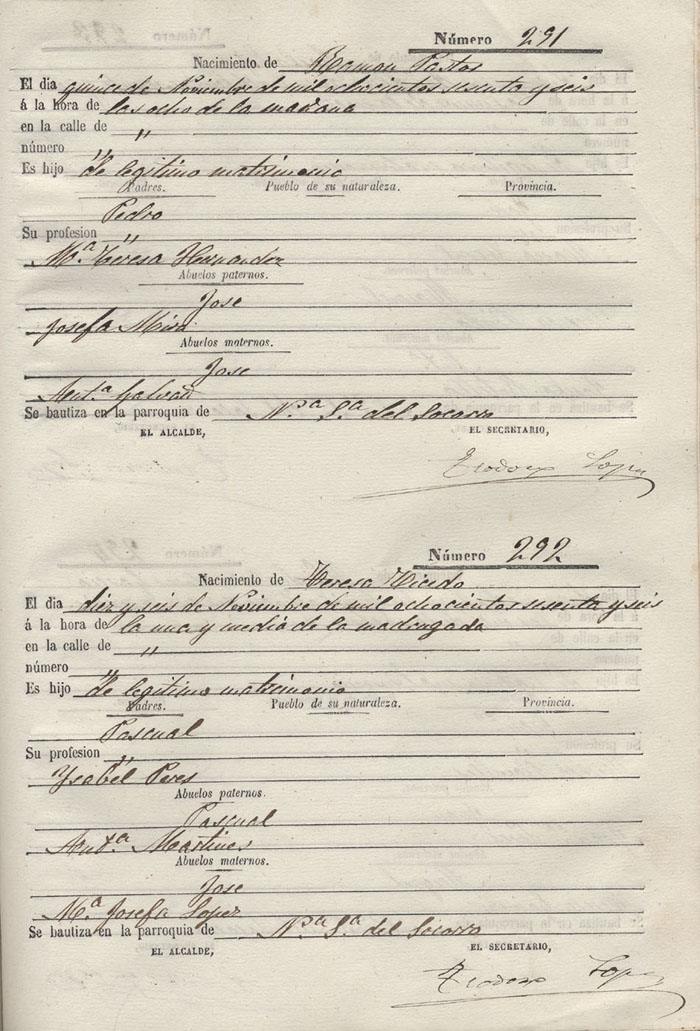 Número 291
Nacimiento de Ramon Pastor
El dia quince de Noviembre de mil ochocientos sesenta y seis
á la hora de las ocho de la mañana
en la calle de "
número "
Es hijo de legitimo matrimonio
Padres. Pueblo de su naturaleza. Provincia.
Pedro
Su profesion "
Mª Teresa Hernandez
Abuelos paternos.
Jose
Josefa Mira
Abuelos maternos.
Jose
Antª Galvañ
Se bautiza en la parroquia de Nª Sª del Socorro
EL ALCALDE, EL SECRETARIO,
Teodoro Lopez
Número 292
Nacimiento de Teresa Vicedo
El dia diez y seis de Noviembre de mil ochocientos sesenta y seis
á la hora de la una y media de la madrugada
en la calle de "
número "
Es hijo de legitimo matrimonio
Padres. Pueblo de su naturaleza. Provincia.
Pascual
Su profesion "
Ysabel Peres
Abuelos paternos.
Pascual
Antª Martines
Abuelos maternos.
Jose
Mª Josefa Lopez
Se bautiza en la parroquia de Nª Sª del Socorro
EL ALCALDE, EL SECRETARIO,
Teodoro Lopez